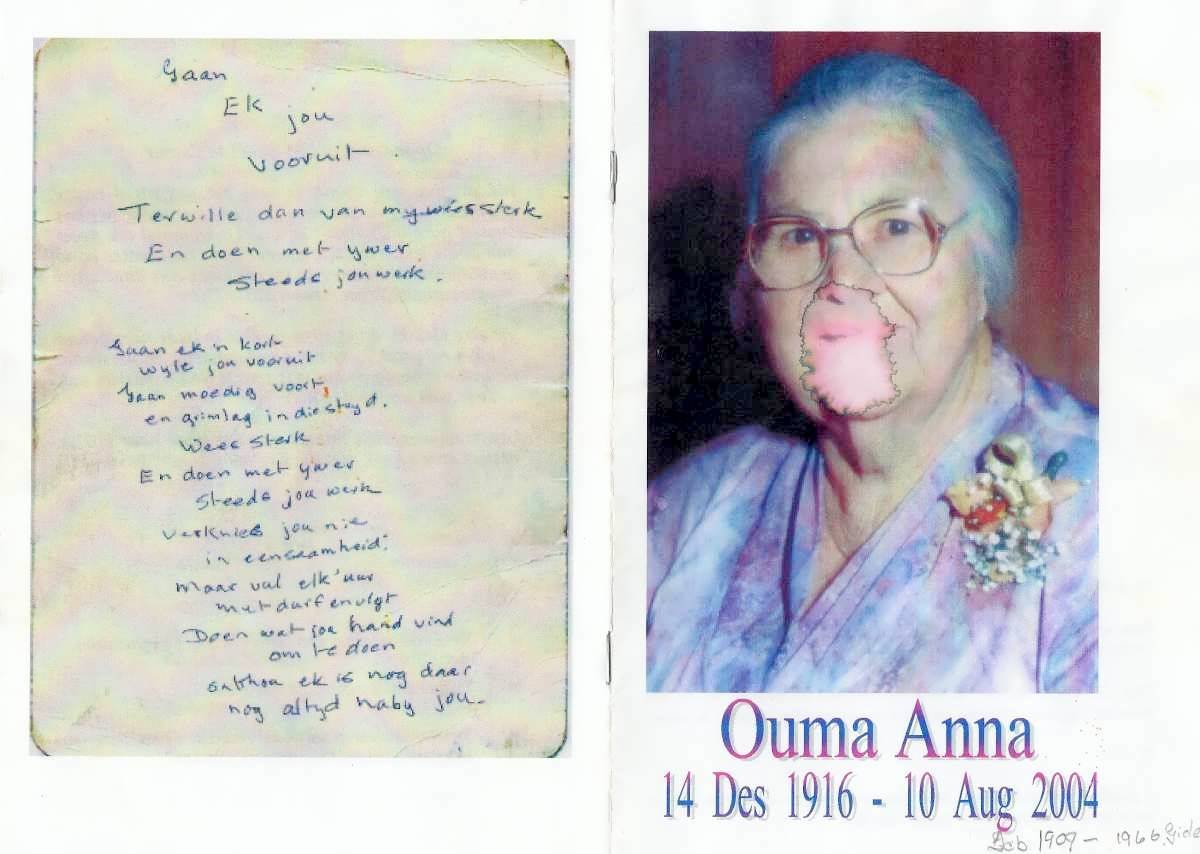 Gaan
Ek jou
vooruit.
Terwille dan van my wees sterk
En doen met ywer
Steeds jou werk.
Gaan ek 'n kort
wyle jou vooruit
Gaan moedig voort,
en grimlag in die stryd.
Wees Sterk
En doen met ywer
Steeds jou werk
verknies jou nie
in eensaamheid;
Maar vul elk' uur
met durf en vlyt
Doen wat jou hand vind
om te doen
onthou ek is nog daar
nog altyd naby jou.
Ouma Anna
14 Des 1916 - 10 Aug 2004
Geb 1909 -